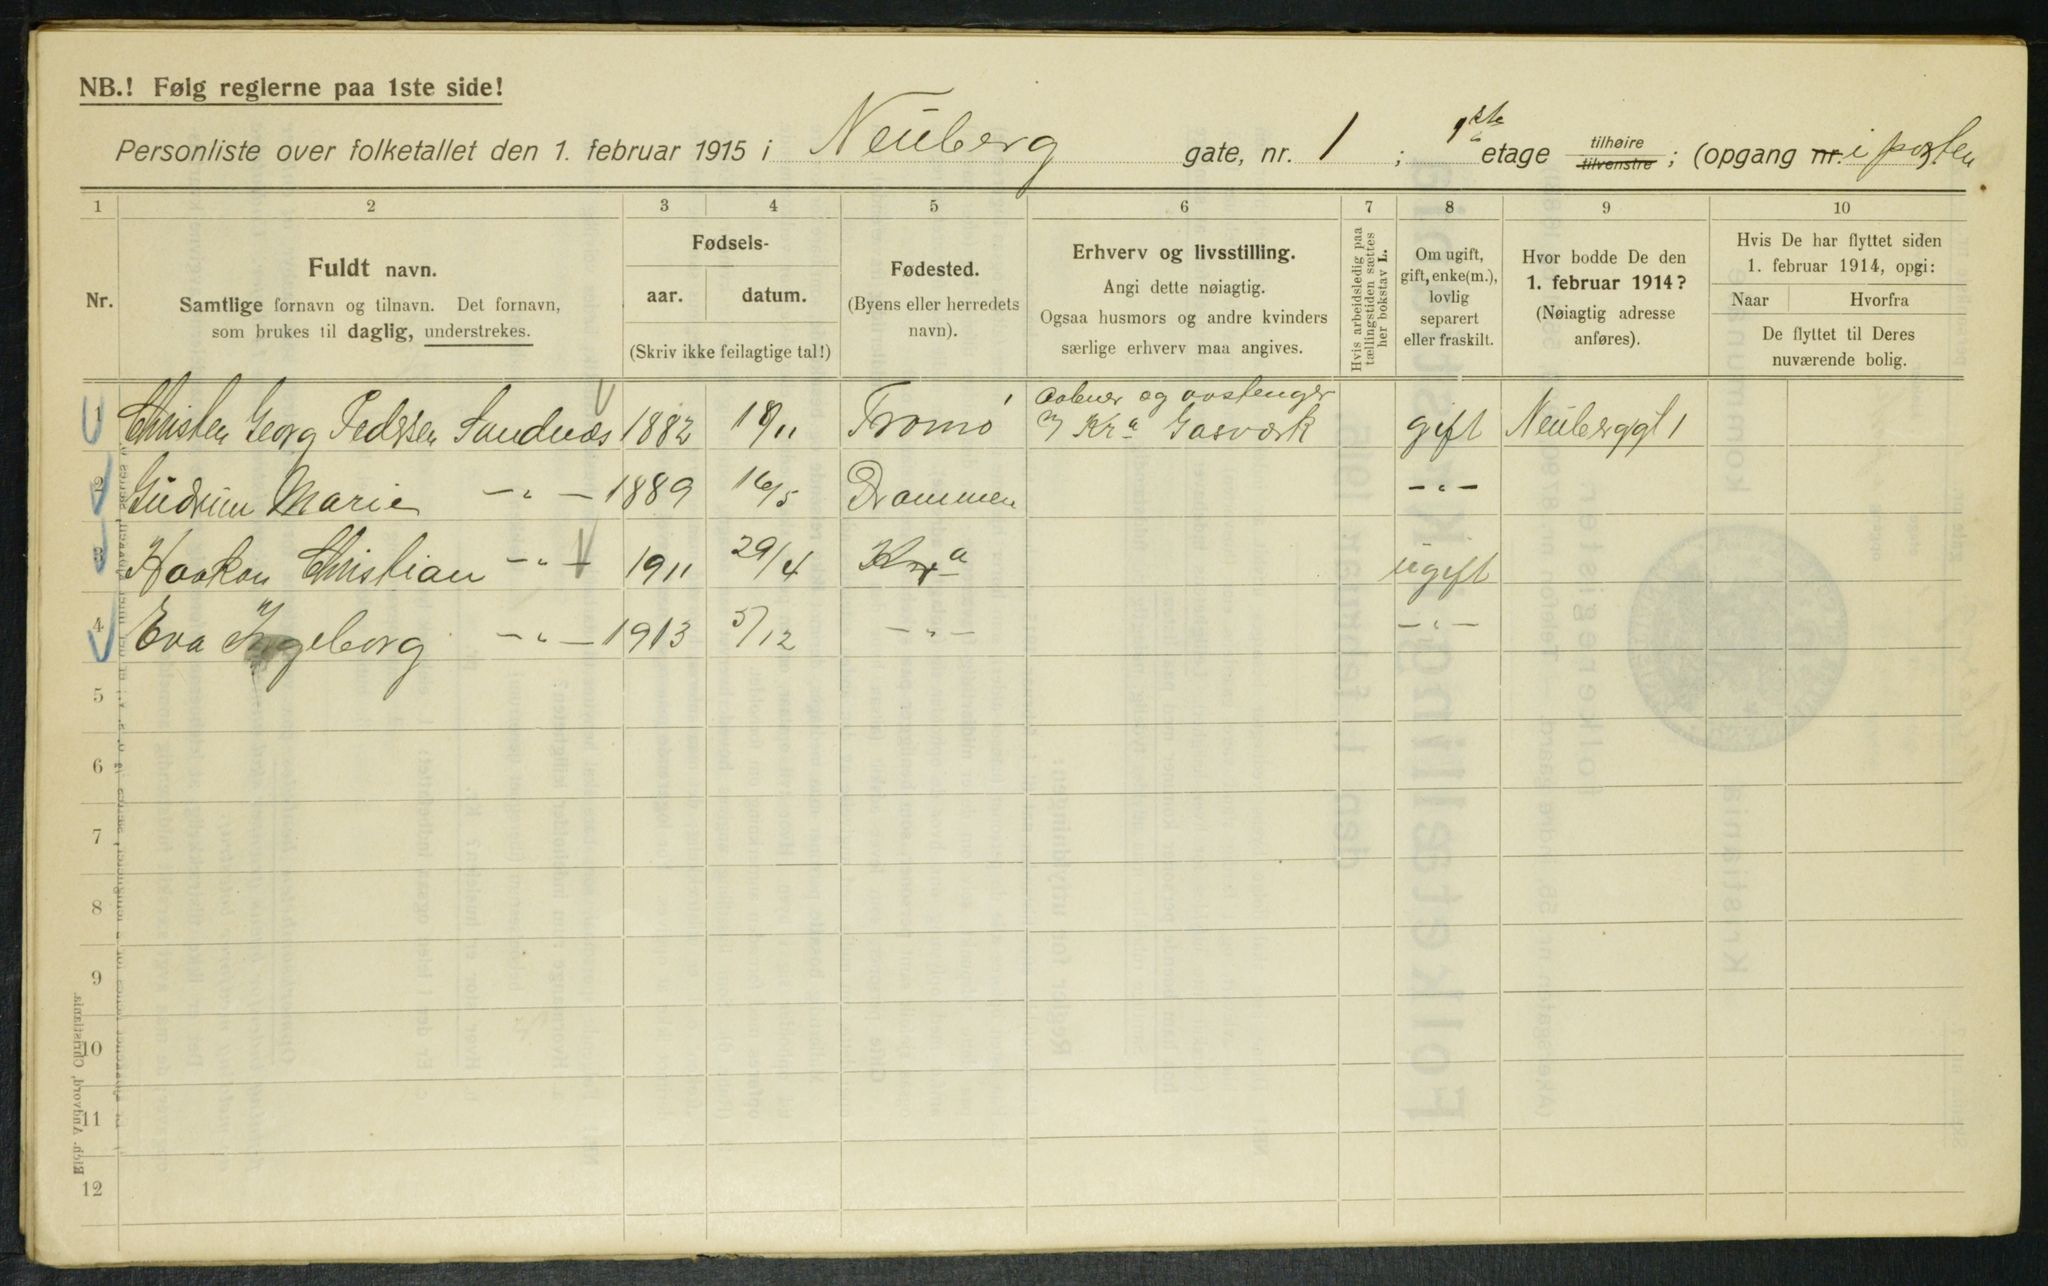 NB.! Følg reglerne paa 1ste side!
Personliste over folketallet den 1. februar 1915 i Neuberg gate, nr. 1 ; 1ste etage tilhøire tilvenstre ; (opgang nr. i porten
1 2 3 4 5 6 7 8 9 10
Nr.
Fuldt navn.
Samtlige fornavn og tilnavn. Det fornavn,
som brukes til daglig, understrekes.
Fødsels-
aar. datum.
(Skriv ikke feilagtige tal!)
Fødested.
(Byens eller herredets
navn).
Erhverv og livsstilling.
Angi dette nøiagtig.
Ogsaa husmors og andre kvinders
særlige erhverv maa angives.
Hvis arbeidsledig paa
tællingstiden sættes
her bokstav L.
Om ugift,
gift, enke(m.),
lovlig
separert
eller fraskilt.
Hvor bodde De den
1. februar 1914?
(Nøiagtig adresse
anføres).
Hvis De har flyttet siden
1. februar 1914, opgi:
Naar Hvorfra
De flyttet til Deres
nuværende bolig.
1 Christen Georg Pedersen Sandnæs 1882 18/11 Tromö og avstenger Kra Gasværk gift Neuberggt 1
2 Gudrun Marie —"— 1889 16/5 Drammen —"—
3 Haakon Christian —"— 1911 29/4 Kra ugift
4 Eva Ingeborg —"— 1913 5/12 —"— —"—
5
6
7
8
9
10
11
12
Eleh. Andvord, Christiania.